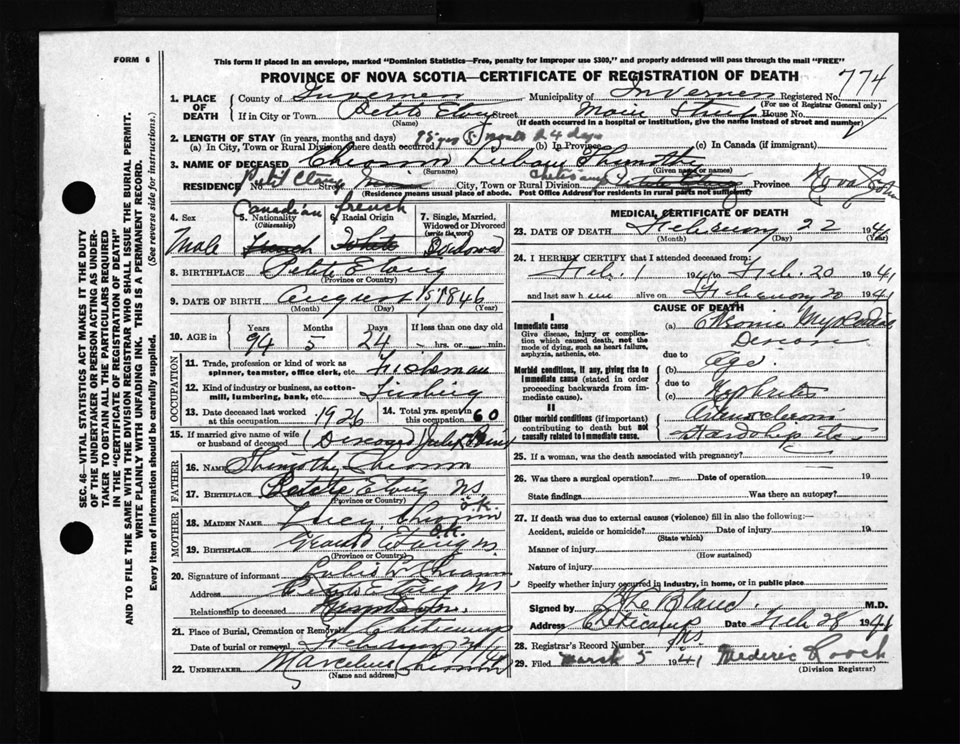 FORM 6
This form if placed in an envelope, marked "Dominion Statistics—Free, penalty for improper use $300," and properly addressed will pass through the mail "FREE"
PROVINCE OF NOVA SCOTIA—CERTIFICATE OF REGISTRATION OF DEATH
774
1. PLACE OF DEATH
County of Inverness Municipality of Inverness Registered No.
(For use of Registrar General only)
If in City or Town Petite Etang Street Main Street House No.
(Name) (If death occurred in a hospital or institution, give the name instead of street and number)
2. LENGTH OF STAY (in years, months and days)
(a) In City, Town or Rural Division where death occurred (b) In Province (c) In Canada (if immigrant)
3. NAME OF DECEASED Thimothy
(Surname) (Given name or names)
RESIDENCE No. Street City, Town or Rural Division Province Nova Scotia
(Residence means usual place of abode. Post Office Address for residents in rural parts not sufficient)
4. Sex Male
5. Nationality (Citizenship) Canadian French
6. Racial Origin French White
7. Single, Married, Widowed or Divorced (write the word) Widowed
8. BIRTHPLACE Petite Etang
(Province or Country)
9. DATE OF BIRTH August 1846
(Month) (Day) (Year)
10. AGE in Years Months Days If less than one day old
94 5 24 hrs. or min.
OCCUPATION
11. Trade, profession or kind of work as spinner, teamster, office clerk, etc. Fisherman
12. Kind of industry or business, as cotton-mill, lumbering, bank, etc. Fishing
13. Date deceased last worked at this occupation 1926
14. Total yrs. spent in this occupation 60
15. If married give name of wife or husband of deceased (Deceased)
FATHER
16. NAME Thimothy
17. BIRTHPLACE Petite Etang NS
(Province or Country)
MOTHER
18. MAIDEN NAME Lucy
19. BIRTHPLACE Grand Etang NS
(Province or Country)
20. Signature of informant
Address Petite Etang NS
Relationship to deceased
21. Place of Burial, Cremation or Removal Cheticamp
Date of burial or removal February 24
22. UNDERTAKER
(Name and address)
MEDICAL CERTIFICATE OF DEATH
23. DATE OF DEATH February 22 1941
(Month) (Day) (Year)
24. I HEREBY CERTIFY that I attended deceased from:
Feb. 1 1941 to Feb. 20 1941
and last saw him alive on February 20 1941
CAUSE OF DEATH
I
Immediate cause
Give disease, injury or complication which caused death, not the mode of dying, such as heart failure, asphyxia, asthenia, etc.
(a) Chronic
due to
Morbid conditions, if any, giving rise to immediate cause (stated in order proceeding backwards from immediate cause).
(b) Age
due to
(c)
II
Other morbid conditions (if important) contributing to death but not causally related to immediate cause.
Hardship etc
25. If a woman, was the death associated with pregnancy?
26. Was there a surgical operation? Date of operation 19
State findings Was there an autopsy?
27. If death was due to external causes (violence) fill in also the following:
Accident, suicide or homicide? Date of injury 19
(State which)
Manner of injury
(How sustained)
Nature of injury
Specify whether injury occurred in industry, in home, or in public place
Signed by M.D.
Address Cheticamp Date Feb 28 1941
NS
28. Registrar's Record Number
29. Filed March 5 1941 Mederic Roach
(Division Registrar)
SEC. 46—VITAL STATISTICS ACT MAKES IT THE DUTY
OF THE UNDERTAKER OR PERSON ACTING AS UNDER-
TAKER TO OBTAIN ALL THE PARTICULARS REQUIRED
IN THE "CERTIFICATE OF REGISTRATION OF DEATH"
AND TO FILE THE SAME WITH THE DIVISION REGISTRAR WHO SHALL ISSUE THE BURIAL PERMIT.
WRITE PLAINLY WITH UNFADING INK. THIS IS A PERMANENT RECORD.
Every item of information should be carefully supplied. (See reverse side for instructions.)